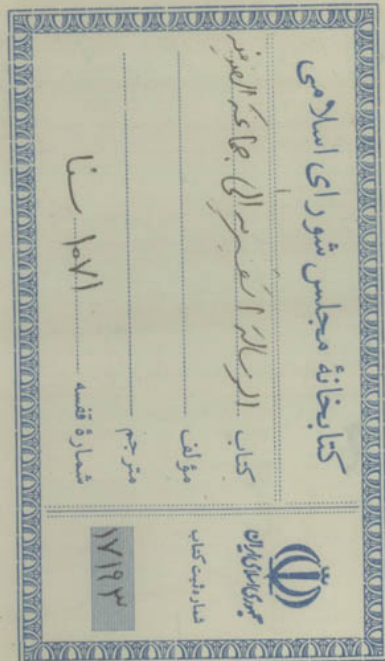 کتابخانهٔ مجلس شورای اسلامی
کتاب الرسالة القشیریه الی جماعة الصوفیه
مؤلف
مترجم
شمارهٔ قفسه ۱۰۷۱ سنا
جمهوری اسلامی ایران
شماره ثبت کتاب
۱۷۱۹۳